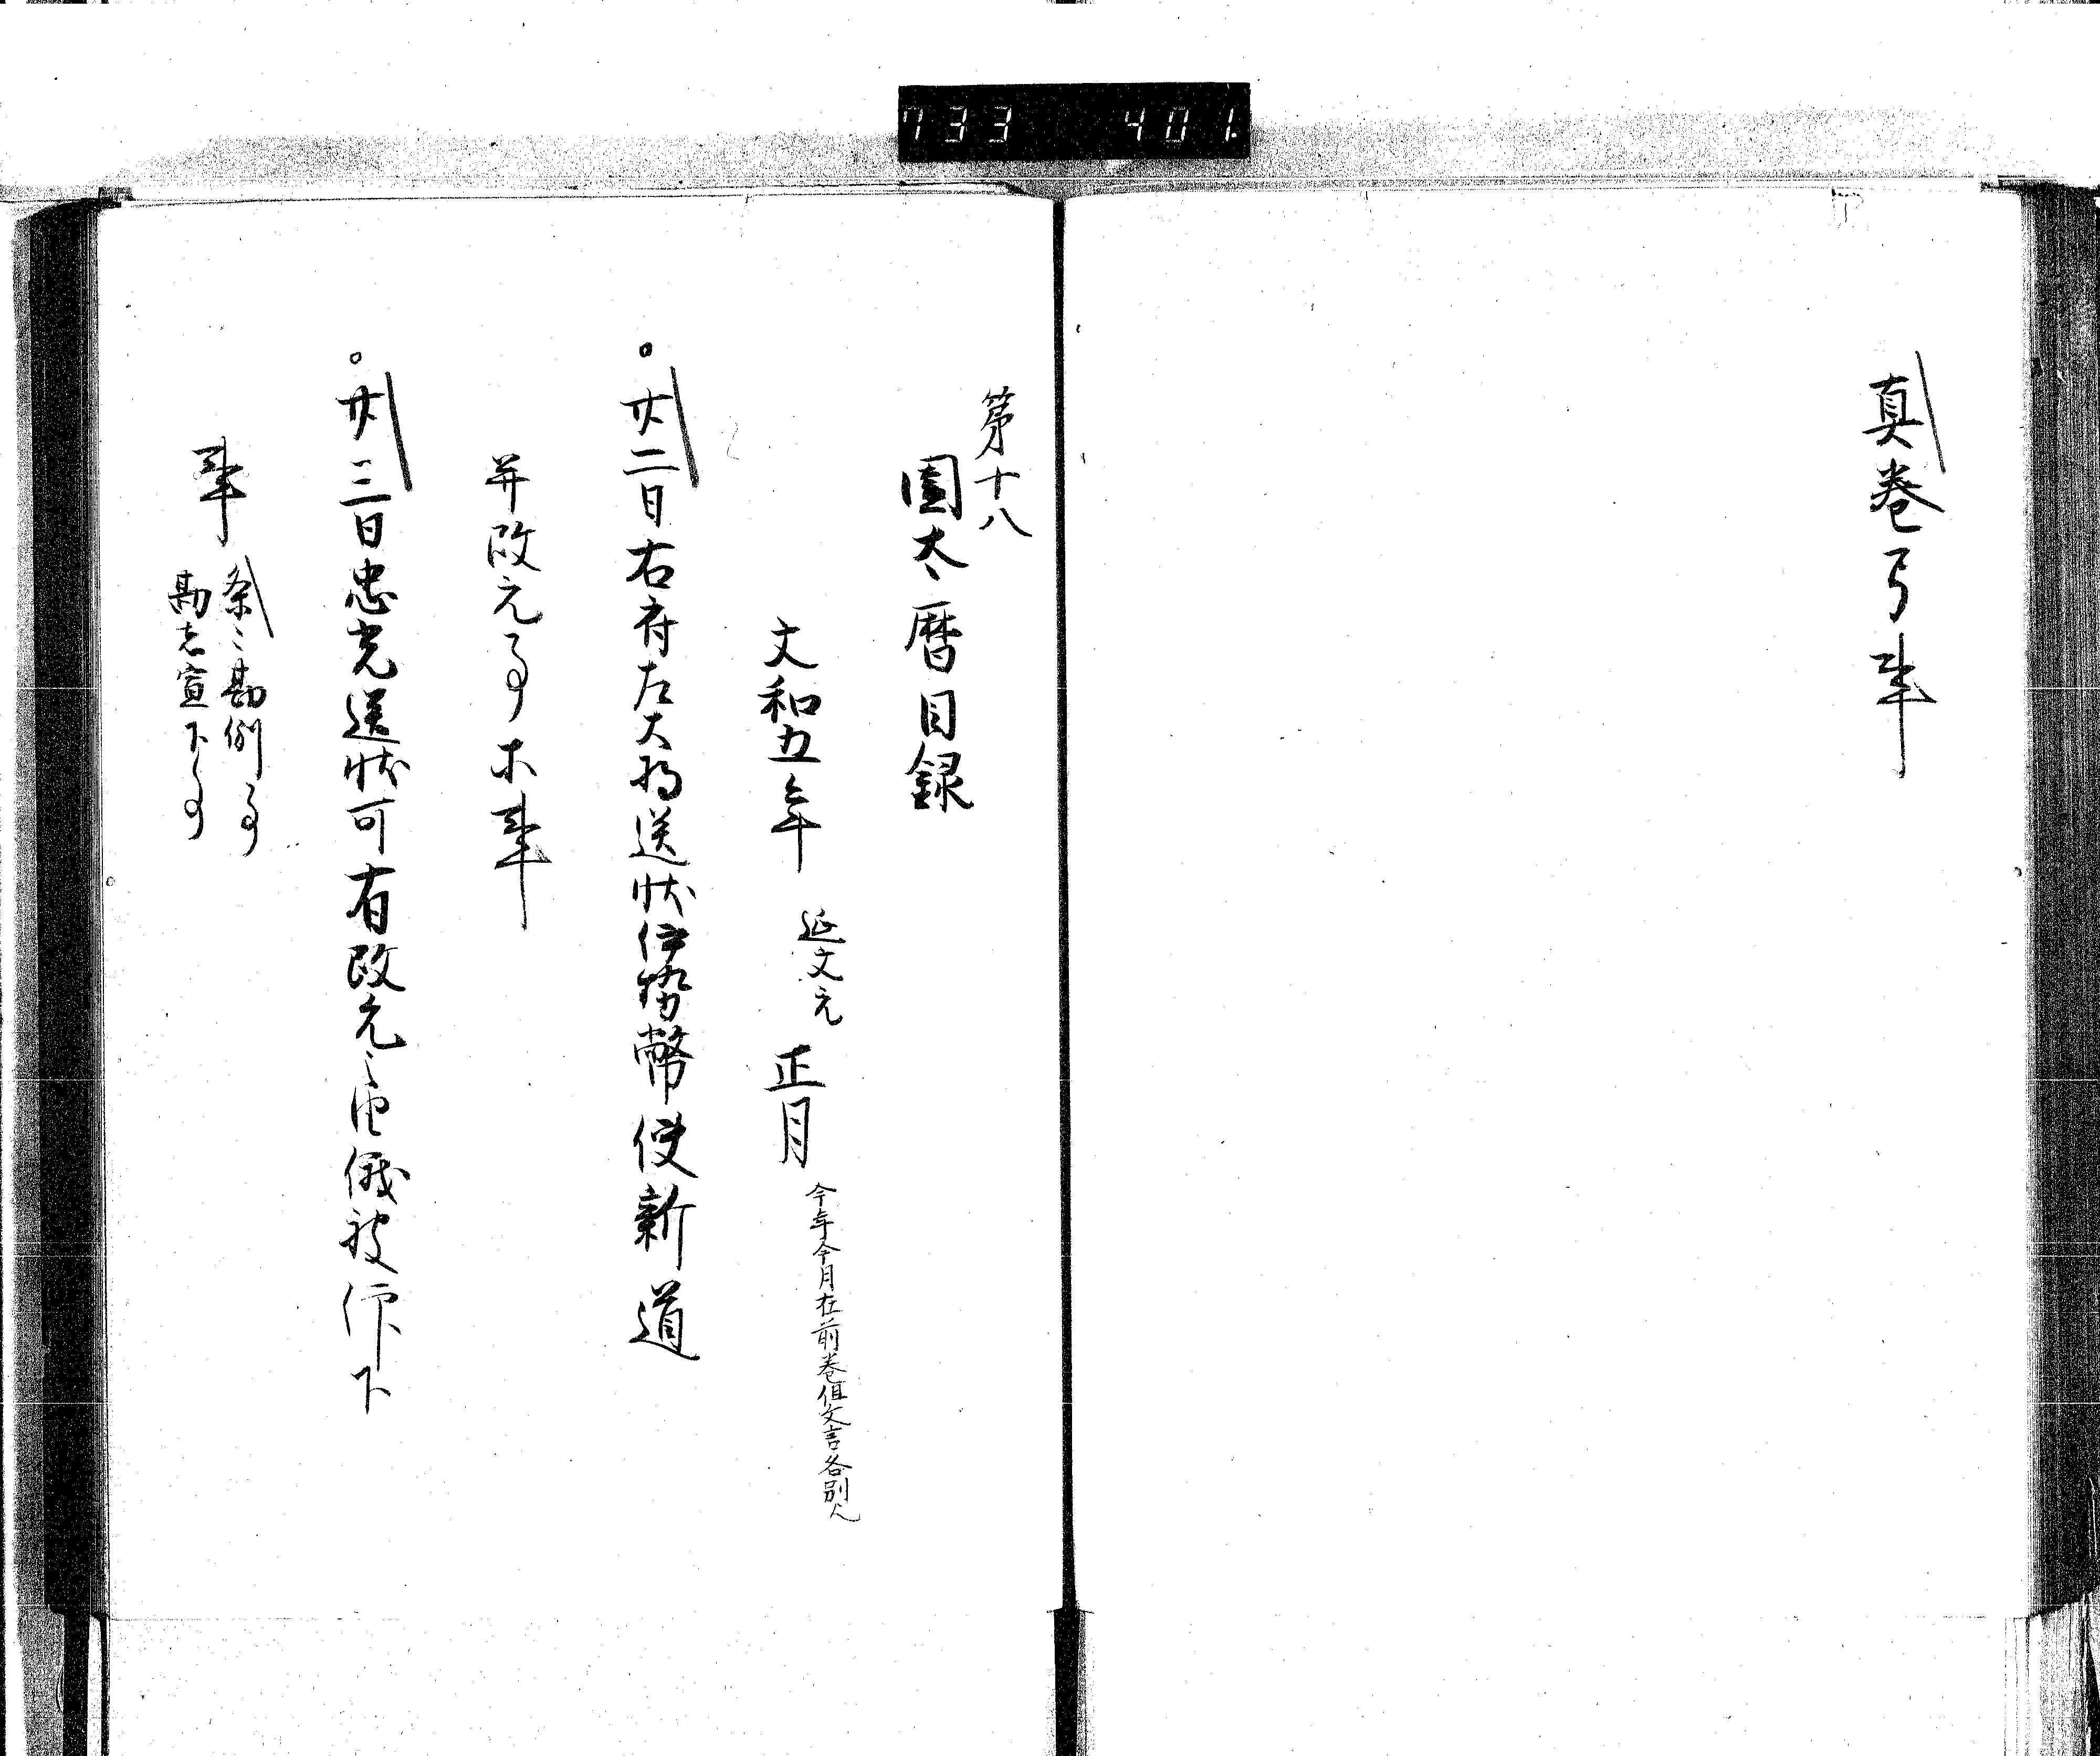 733 401
真巻弓事
第十八
園太暦目録
文和五年 延文元 正月 今年今月在前巻但文言各別也
。廿二日右府左大将送状伊勢幣使新道
并改元事等事
。廿三日忠光送状可有改元之由俄被仰下
事 条々勘例事
勘者宣下事